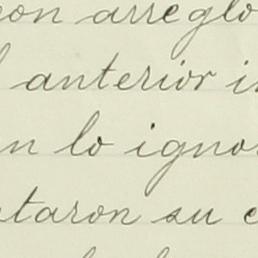 con arreglo
l anterior i
n lo igno
taron su c